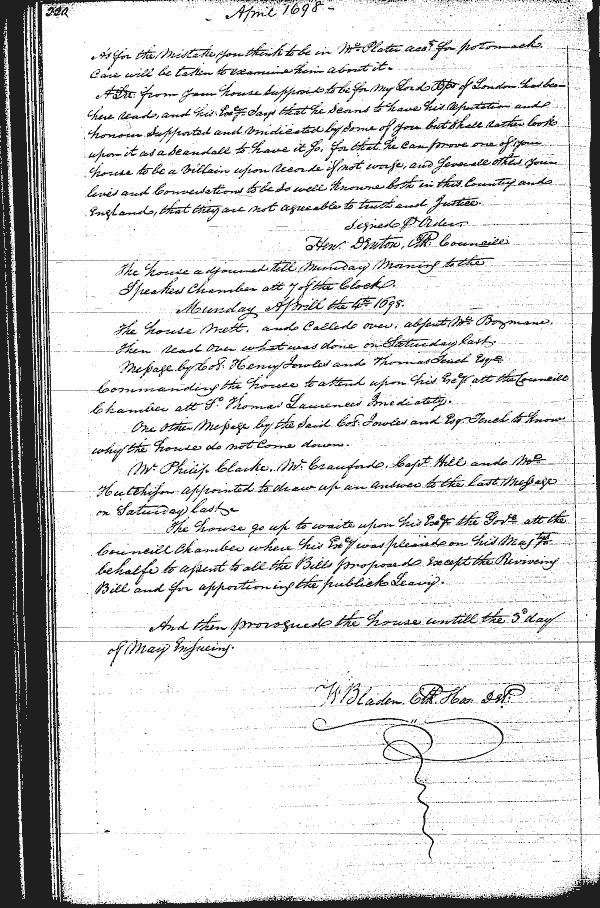 330
- April 1698 -
As for the mistake you think to be in Mr Plater acct. for potomack
Care will be taken to examine him about it.
A Lre from your house supposed to be for my Lord Bp of London has been
here read, and his Exy says that he scorns to have his reputation and
honour supported and vindicated by some of you but shall rather look
upon it as a scandall to have it so, for that he can prove one of your
house to be a Villain upon record if not worse, and severall others your
lives and Conversations to be so well knowne both in this Country and
England, that they are not agreeable to truth and Justice.
Signed P Order
Hen: Denton, Clk Councill
The house adjourned till Munday Morning to the
Speakers Chamber att 7 of the Clock.
Munday Aprill the 4th 1698.
The house mett. and called over. absent Mr Bozmane.
Then read over what was done on Saturday last
Message by Col. Henry Jowles and Thomas Tench Esqr
Commanding the house to attend upon his Exy att the Councill
Chamber att Sr Thomas Laurences Imediately.
One other Message by the said Col. Jowles and Esq. Tench to know
why the house do not come down.
Mr Philip Clarke, Mr Crawford, Capt Hill and Mr
Hutchison appointed to draw up an answer to the last Message
on Saturday last
The house go up to waite upon his Exy the Govr att the
Councill Chamber where his Exy was pleased on his Majtys
behalfe to assent to all the Bills proposed Except the Reviveing
Bill and for apportioning the publick Leavy.
And then prorogued the house untill the 3d day
of May Ensueing.
W Bladen Clk. Hou. Del.